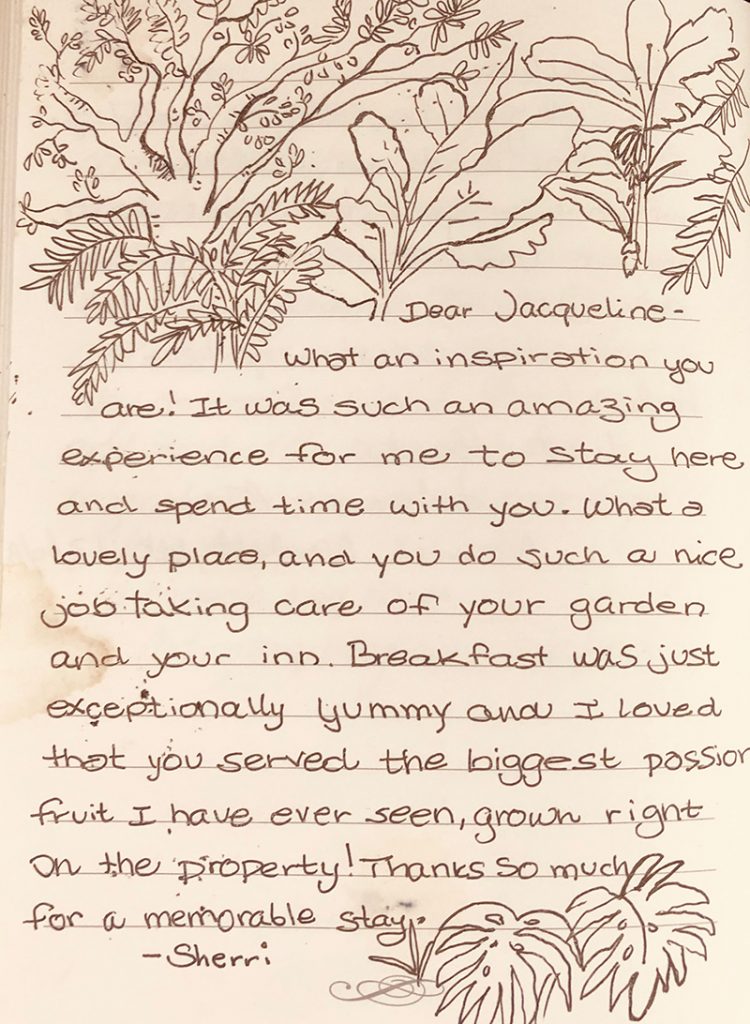 Dear Jacqueline-
What an inspiration you
are! It was such an amazing
experience for me to stay here
and spend time with you. What a
lovely place, and you do such a nice
job taking care of your garden
and your inn. Breakfast was just
exceptionally yummy and I loved
that you served the biggest passion
fruit I have ever seen, grown right
on the property! Thanks so much
for a memorable stay.
-Sherri